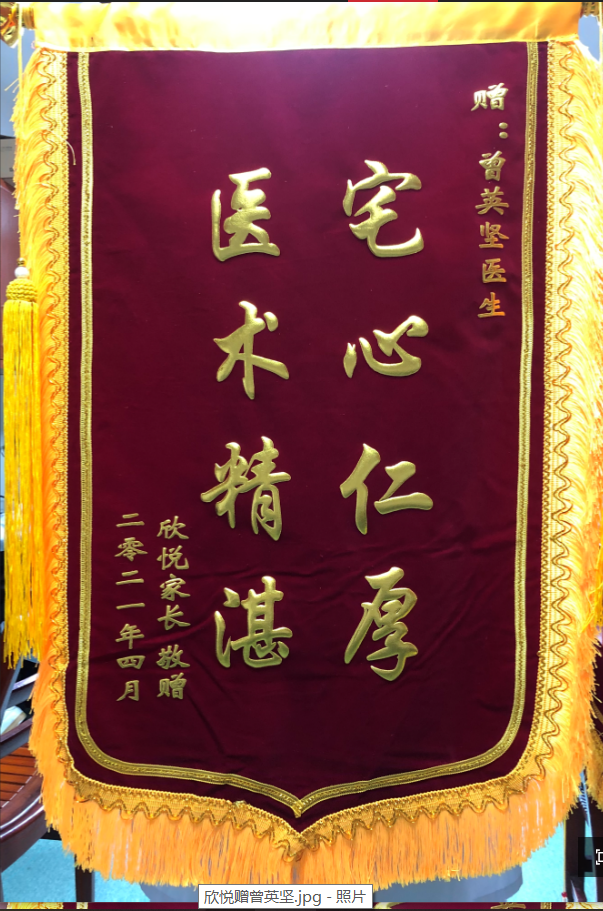 赠：曾英坚医生
宅心仁厚
医术精湛
欣悦家长敬赠
二零二一年四月
欣悦赠曾英坚.jpg - 照片